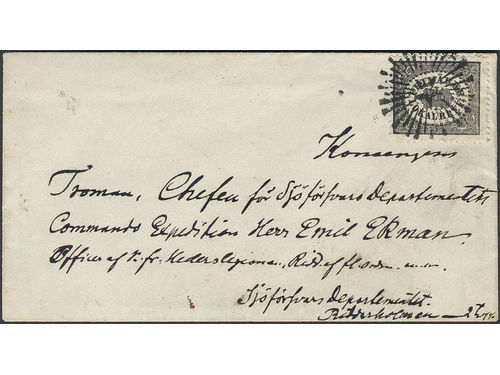 Konungens
Troman, Chefen för Sjöförsvars Departementets
Commando Expedition Herr Emil Ekman.
Officer af K. fr. Hederslegionen, Ridd. af fl. orden. m.m.
Sjöförsvars Departementet.
Riddarholmen